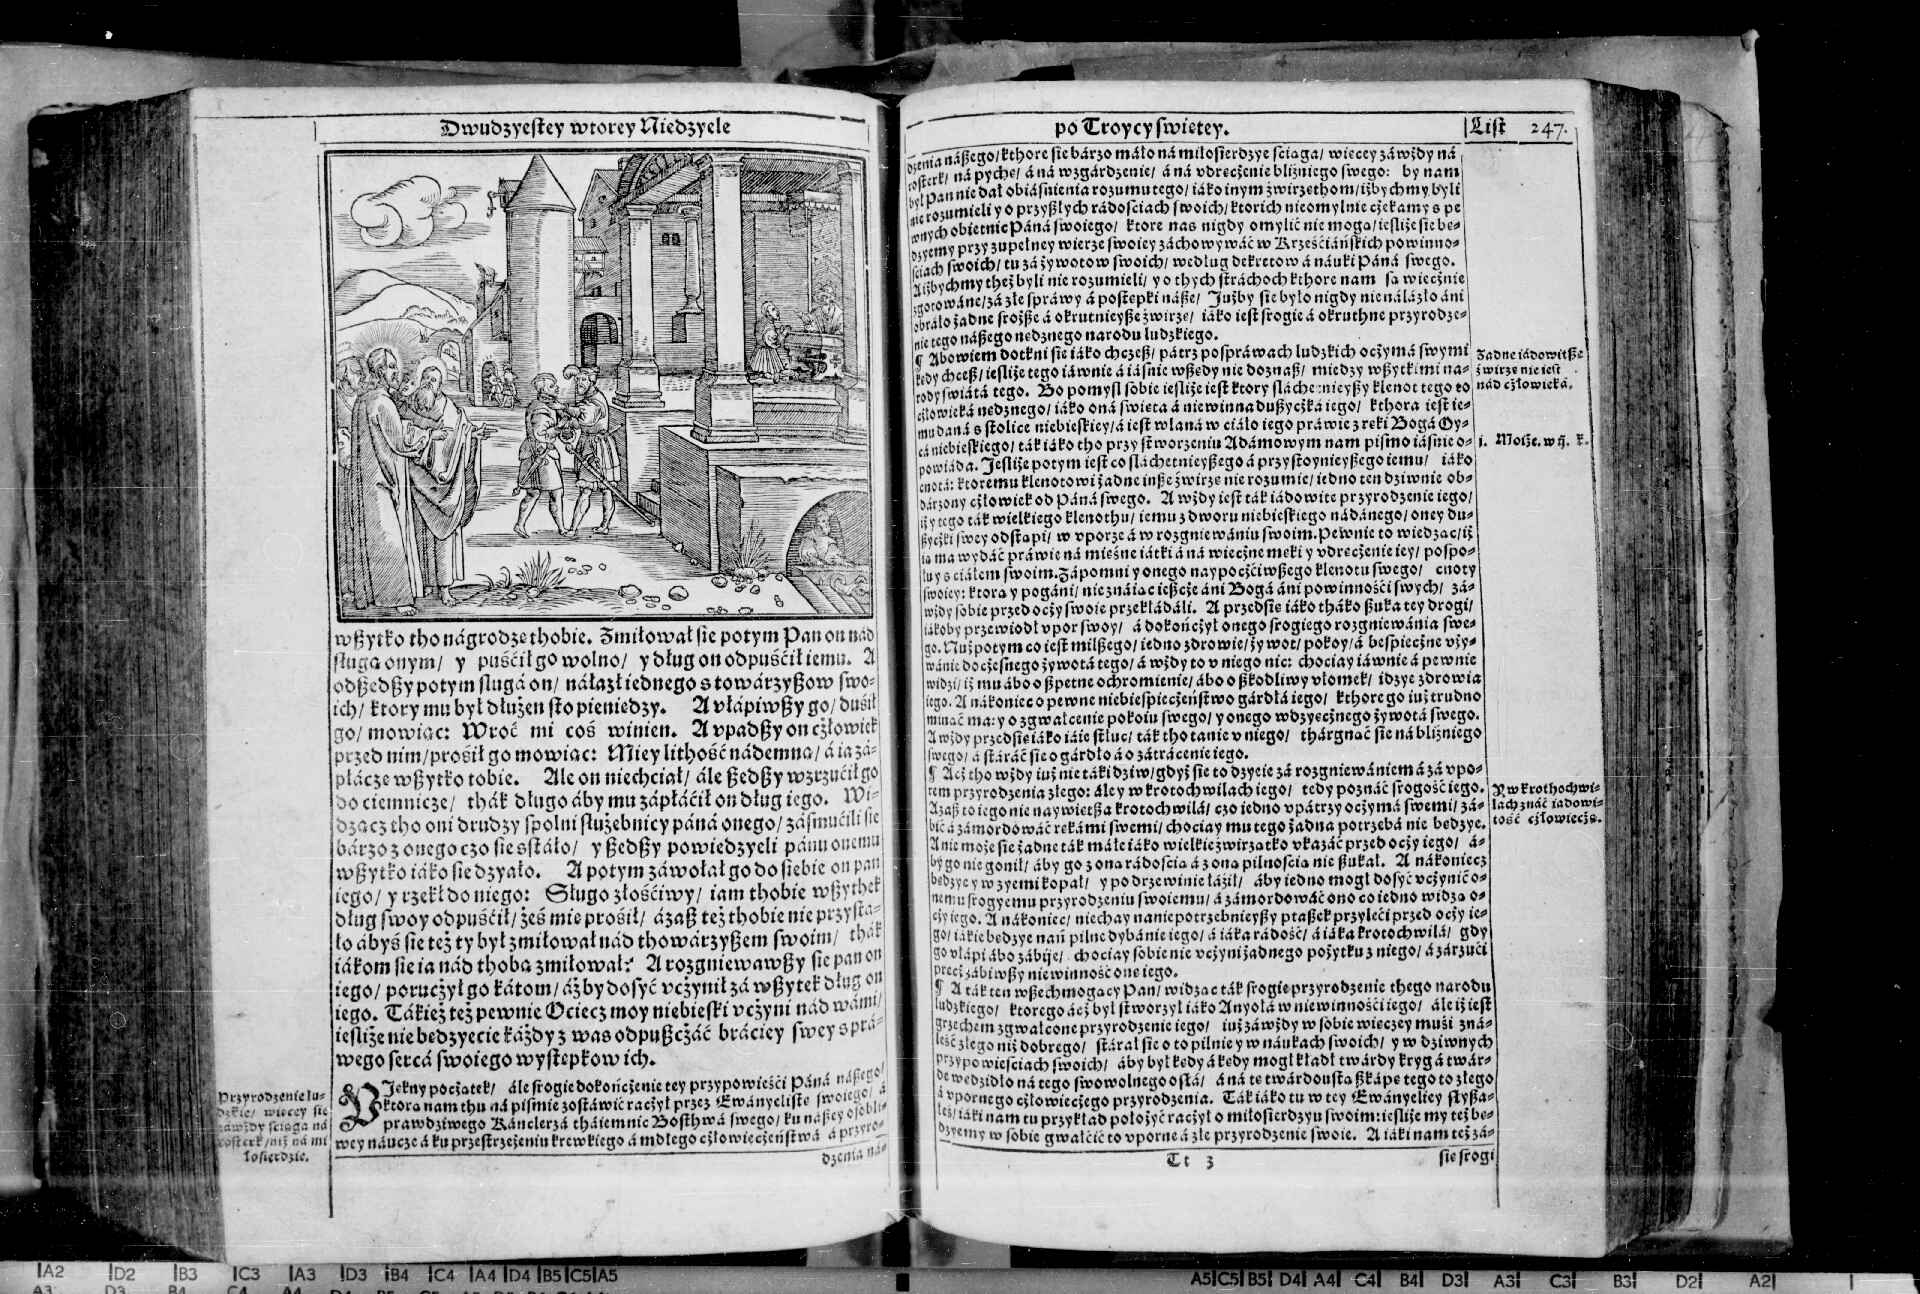 Dwudzyestey wtorey Niedzyele
wßytko tho nágrodze thobie. Zmiłował sie potym Pan on nád
sługa onym/ y puśćił go wolno/ y dług on odpuśćił iemu. A
odßedßy potym sługá on/ nálazł iednego s towárzyßow swo-
ich/ ktory mu był dłużen sto pieniedzy. A vłápiwßy go/ duśił
go/ mowiąc: Wroć mi coś winien. A vpadßy on cżłowiek
przed nim/ prośił go mowiąc: Miey lithość nádemną/ á ia zá-
płácze wßytko tobie. Ale on niechciał/ ále ßedßy wzrzućił go
do ciemnicze/ thák długo áby mu zápłáćił on dług iego. Wi-
dzącz tho oni drudzy spolni służebnicy páná onego/ zásmućili sie
bárzo z onego czo sie sstáło/ y ßedßy powiedzyeli pánu onemu
wßytko iáko sie dzyało. A potym záwołał go do siebie on pan
iego/ y rzekł do niego: Sługo złośćiwy/ iam thobie wßythek
dług swoy odpuśćił/ żeś mie prośił/ ázaß też thobie nie przysta-
ło ábyś sie też ty był zmiłował nád thowárzyßem swoim/ thák
iákom sie ia nád thobą zmiłował? A rozgniewawßy sie pan on
iego/ porucżył go kátom/ áżby dosyć vcżynił zá wßytek dług on
iego. Tákież też pewnie Ociecz moy niebieski vcżyni nád wámi/
iesliże nie bedzyecie káżdy z was odpußcżáć bráciey swey s prá-
wego sercá swoiego wystepkow ich.
Przyrodzenie lu-
dzkie/ wiecey sie
záwżdy ściąga ná
rosterk/ niż ná mi
łosierdzie.
PIekny pocżatek/ ále srogie dokończenie tey przypowieśći Páná nászego/
ktora nam thu ná piśmie zostáwić racżył przez Ewányeliste swoiego/ á
prawdziwego Kánclerzá tháiemnic Bosthwá swego/ ku nászey osobli-
wey náucze á ku przestrzeżeniu krewkiego á mdłego cżłowiecżeństwá á przyro-
dzenia ná-
po Troycy swietey.
List 247.
dzenia nászego/ kthore sie bárzo máło ná miłosierdzye ściąga/ wiecey záwżdy ná
rosterk/ ná pyche/ á ná wzgárdzenie/ á ná vdrecżenie bliźniego swego: by nam
był Pan nie dał obiáśnienia rozumu tego/ iáko inym źwirzethom/ iżbychmy byli
nie rozumieli y o przyßłych rádościach swoich/ ktorich nieomylnie cżekamy s pe
wnych obietnic Páná swoiego/ ktore nas nigdy omylić nie mogą/ iesliże sie be-
dzyemy przy zupełney wierze swoiey záchowywáć w Krześćiáńskich powinno-
śćiach swoich/ tu zá żywotow swoich/ według dekretow á náuki Páná swego.
A iżbychmy theż byli nie rozumieli/ y o thych stráchoch kthore nam są wiecżnie
zgotowáne/ zá złe spráwy á postepki násze/ Jużby sie było nigdy nie nálázło áni
obráło żadne srożße á okrutnieyße źwirze/ iáko iest srogie á okruthne przyrodze-
nie tego nászego nedznego narodu ludzkiego.
¶ Abowiem dotkni sie iáko chczeß/ pátrz po spráwach ludzkich ocżymá swymi
kędy chceß/ iesliże tego iáwnie á iáśnie wßędy nie doznaß/ miedzy wßytkimi na-
rody świátá tego. Bo pomysł sobie iesliże iest ktory sláchetnieyßy klenot tego to
cżłowieká nędznego/ iáko oná święta á niewinna dußycżká iego/ kthora iest ie-
mu daná s stolice niebieskiey/ á iest wlaná w ciáło iego práwie z ręki Bogá Oy-
cá niebieskiego/ ták iáko tho przy stworzeniu Adámowym nam pismo iáśnie o-
powiáda. Jesliże potym iest co sláchetnieyßego á przystoynieyßego iemu/ iáko
cnotá: ktoremu klenotowi żadne inße źwirze nie rozumie/ iedno ten dziwnie ob-
dárzony cżłowiek od Páná swego. A wżdy iest ták iádowite przyrodzenie iego/
iż y tego ták wielkiego klenothu/ iemu z dworu niebieskiego nádánego/ oney du-
ßycżki swey odstąpi/ w vporze á w rozgniewániu swoim. Pewnie to wiedząc/ iż
ią ma wydáć práwie ná mięsne iátki á ná wiecżne męki y vdrecżenie iey/ pospo-
łu y s ciáłem swoim. Zápomni y onego naypocżćiwßego klenotu swego/ cnoty
swoiey: ktorą y pogáni/ nie znáiąc iescże áni Bogá áni powinnośći swych/ zá-
wżdy sobie przed ocży swoie przekłádáli. A przedsię iáko tháko ßuka tey drogi/
iákoby przewiodł vpor swoy/ á dokończył onego srogiego rozgniewánia swe-
go. Nuż potym co iest milßego/ iedno zdrowie/ żywot/ pokoy/ á bespiecżne vży-
wánie docżesnego żywotá tego/ á wżdy to v niego nic: chociay iáwnie á pewnie
widzi/ iż mu ábo o ßpetne ochromienie/ ábo o ßkodliwy vłomek/ idzye zdrowia
iego. A nákoniec o pewne niebiespiecżeństwo gárdłá iego/ kthorego iuż trudno
minąć ma: y o zgwałcenie pokoiu swego/ y onego wdzyecżnego żywotá swego.
A wżdy przedsię iáko iáie stłuc/ ták tho tánie v niego/ thárgnąć sie ná bliźniego
swego/ á stáráć sie o gárdło á o zátrácenie iego.
¶ Acż tho wżdy iuż nie táki dziw/ gdyż sie to dzyeie zá rozgniewániem á zá vpo-
rem przyrodzenia złego: ále y w krotochwilach iego/ tedy poznáć srogość iego.
Azaß to iego nie naywietßa krotochwilá/ czo iedno vpátrzy ocżymá swemi/ zá-
bić á zámordowáć rękámi swemi/ chociay mu tego żadna potrzebá nie bedzye.
A nie może sie żadne ták máłe iáko wielkie źwirzątko vkázáć przed ocży iego/ á-
by go nie gonił/ áby go z oną rádością á z oną pilnością nie ßukał. A nákoniecz
bedzye y w zyemi kopał/ y po drzewinie łáził/ áby iedno mogł dosyć vcżynić o-
nemu srogyemu przyrodzeniu swoiemu/ á zámordowáć ono co iedno widzą o-
cży iego. A nákoniec/ niechay naniepotrzebnieyßy ptaßek przyleci przed ocży ie-
go/ iákie bedzye nań pilne dybánie iego/ á iáka rádość/ á iáka krotochwilá/ gdy
go vłápi ábo zábije/ chociay sobie nie vcżyni żadnego pożytku z niego/ á zárzući
precż zábiwßy niewinność onę iego.
¶ A ták ten wßechmogący Pan/ widząc ták srogie przyrodzenie thego narodu
ludzkiego/ ktorego acż był stworzył iáko Anyołá w niewinnośći iego/ ále iż iest
grzechem zgwałcone przyrodzenie iego/ iuż záwżdy w sobie wieczey muśi zna-
leść złego niż dobrego/ stárał sie o to pilnie y w náukach swoich/ y w dziwnych
przypowieściach swoich/ áby był kędy á kędy mogł kładł twárdy kryg á twár-
de wędzidło ná tego swowolnego osłá/ á ná tę twárdoustą ßkápę tego to złego
á vpornego cżłowiecżego przyrodzenia. Ták iáko tu w tey Ewányeliey słyßa-
łeś/ iáki nam tu przykład położyć racżył o miłosierdzyu swoim: iesliże my też be-
dzyemy w sobie gwałcić to vporne á złe przyrodzenie swoie. A iáki nam też zá-
Tt 3
sie srogi
Zadne iádowitße
źwirze nie iest
nád cżłowieká.
j. Moiże. w ij. k.
Y w krothochwi-
lach znáć iadowi-
tość cżłowiecżą.
A2 D2 B3 C3 A3 D3 B4 C4 A4 D4 B5 C5 A5
A5 C5 B5 D4 A4 C4 B4 D3 A3 C3 B3 D2 A2